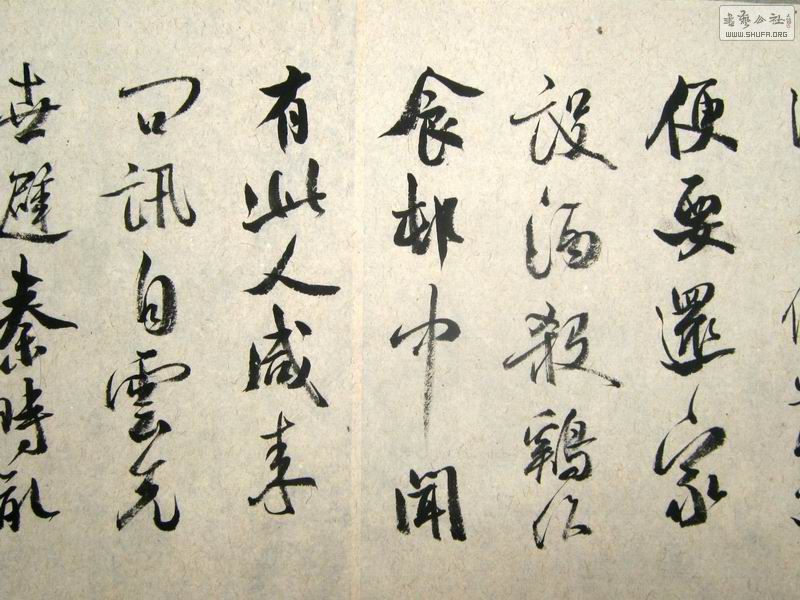 便要還家
設酒殺鷄作
食邨中聞
有此人咸来
問訊自雲先
世避秦時亂
書藝公社
WWW.SHUFA.ORG